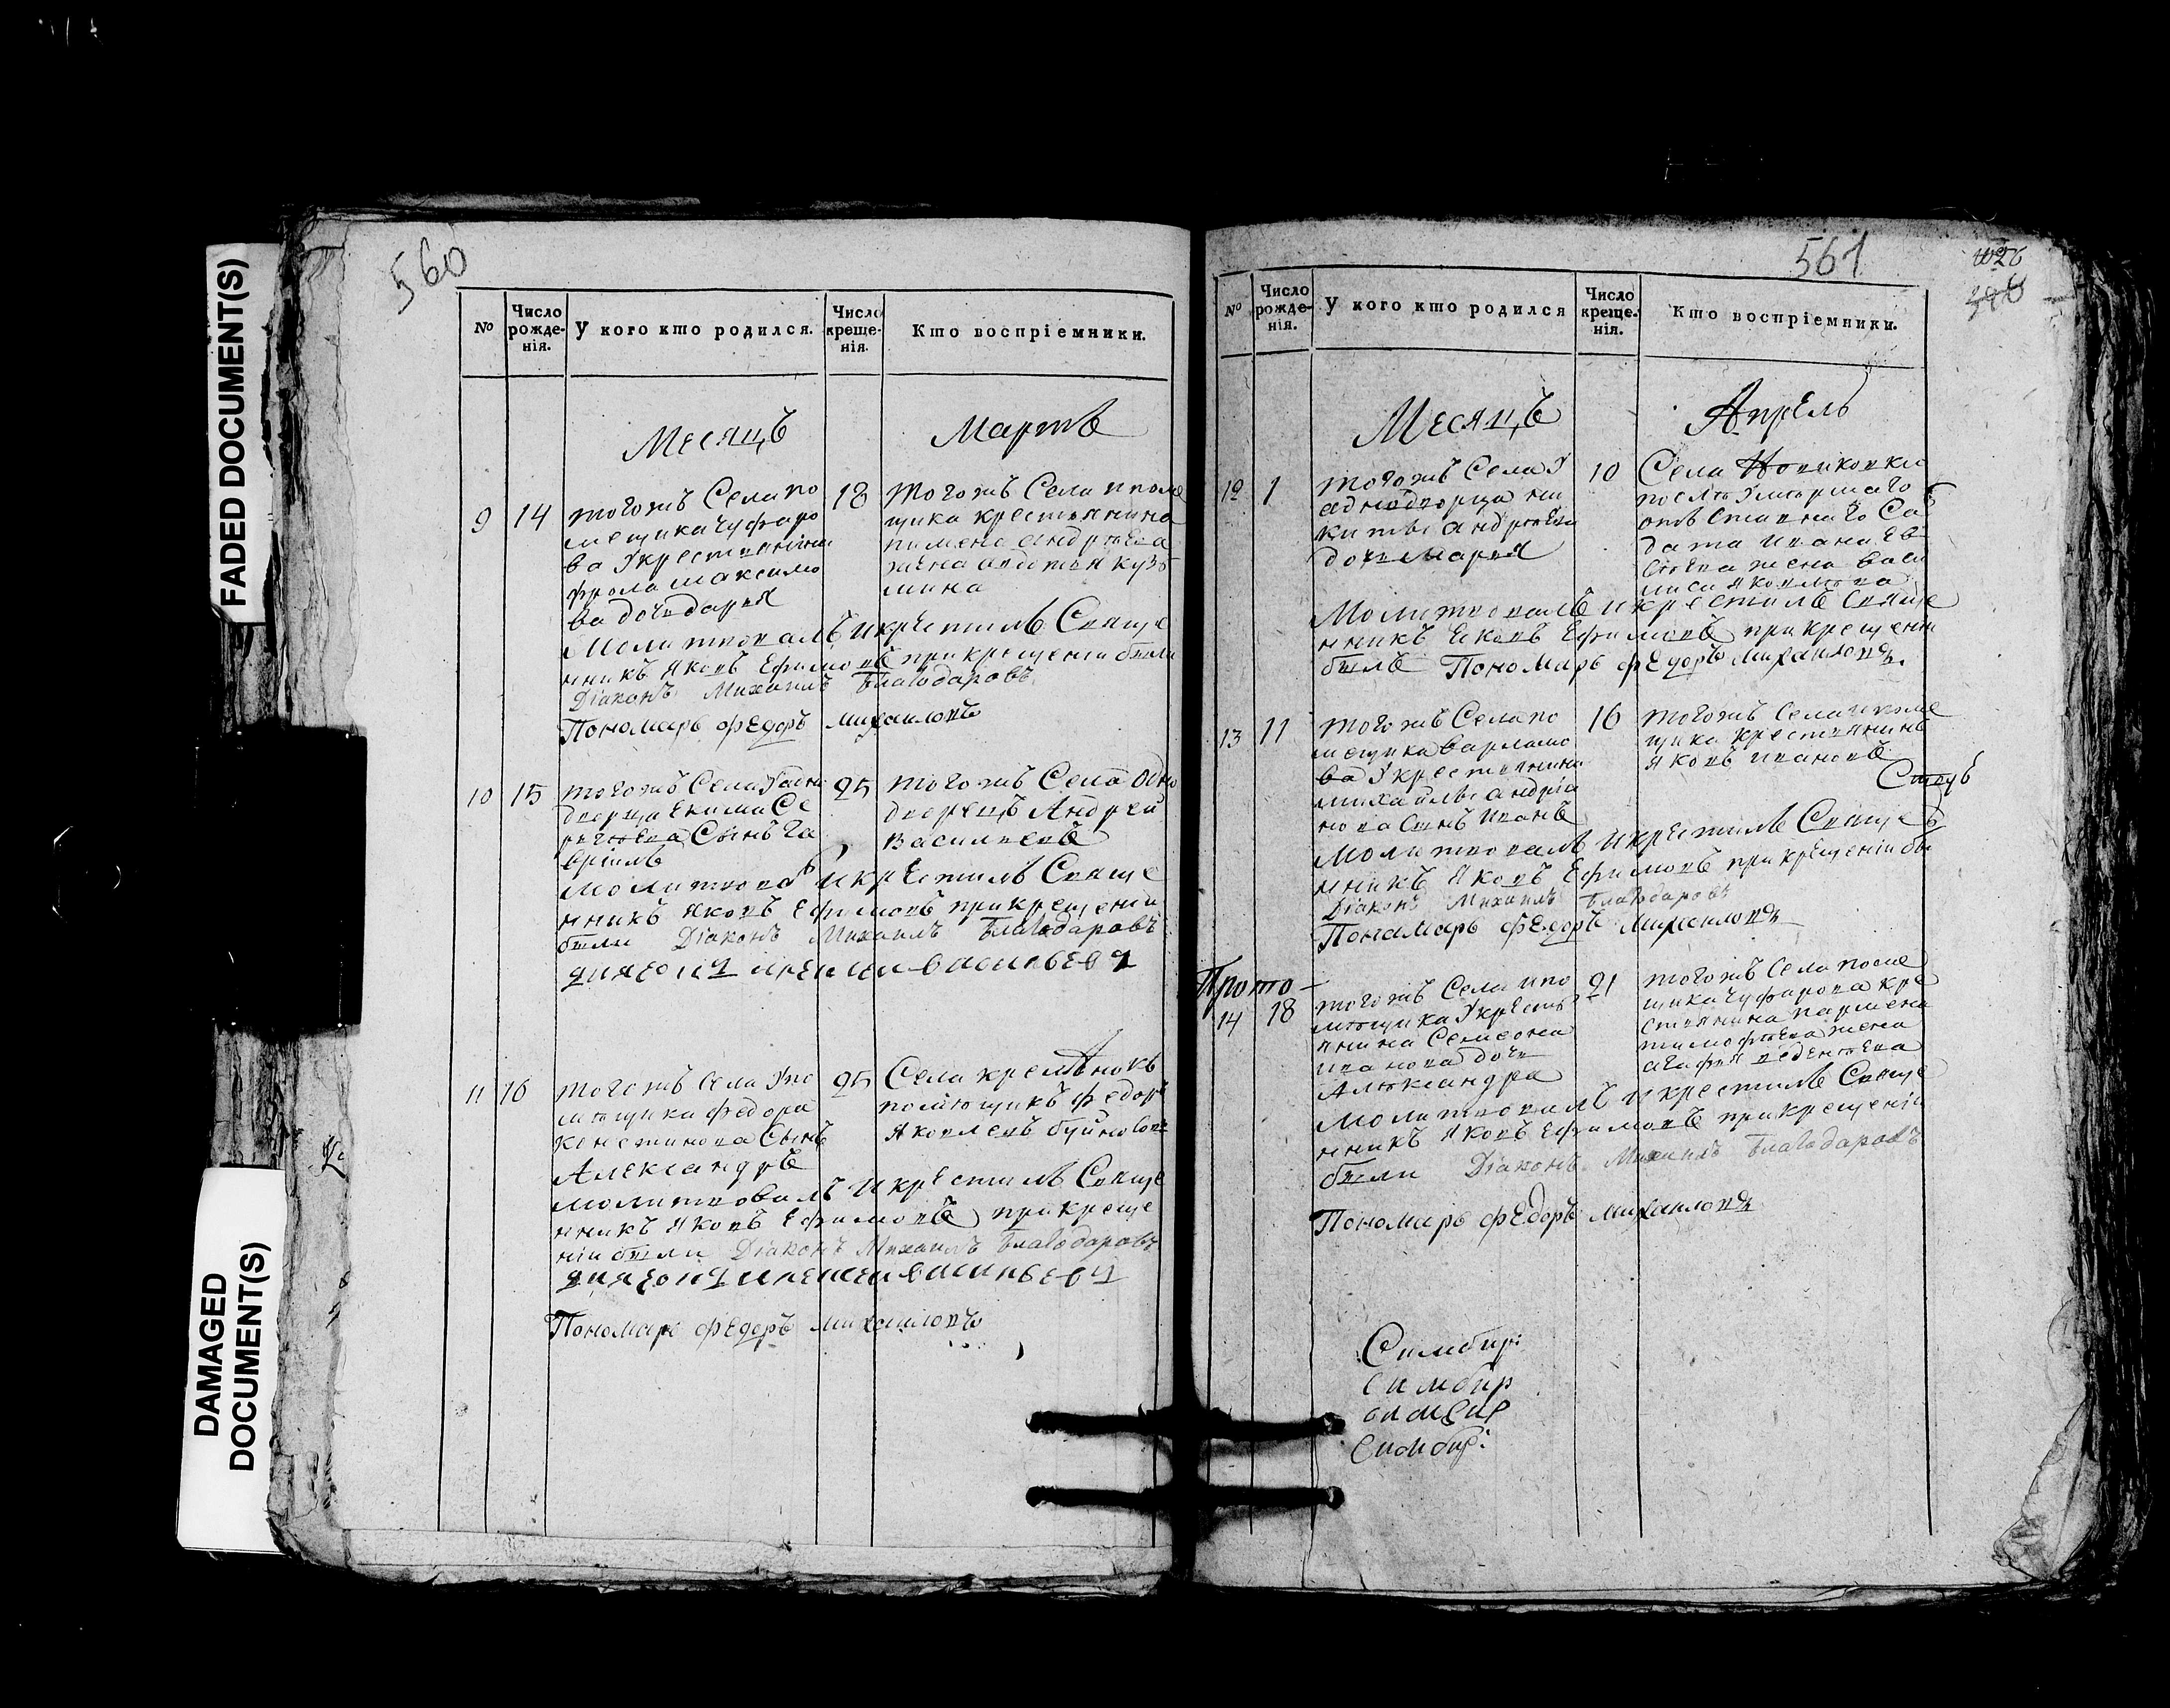 FADED DOCUMENT(S)
DAMAGED
DOCUMENT(S)
560
№
Число
рожде-
нія.
У кого кто родился.
Число
креще-
нія.
Кто воспріемники.
Месяцъ Мартъ
9 14
тогожъ Села по
мещика Чуфаро
ва У крестьянина
фрола максимо
ва дочь дарья
18
тогожъ Села поме
щика крестьянина
пимена андреева
жена авдотья кузь
мина
Молитвовалъ и крестилъ Свяще
нникъ Яковъ Ефимовъ при крещеніи были
Діаконъ Михаилъ Благодаровъ
Пономарь фЕдоръ михаиловъ
10 15
тогожъ Села Уадно
дворца Екима Се
ргеева Сынъ Га
вріилъ
25
тогожъ Села Одно
дворецъ Андрей
Васильевъ
молитвовалъ и крЕстилъ Свяще
нникъ Яковъ Ефимовъ при крещеніи
были Діаконъ Михаилъ Благодаровъ
11 16
тогожъ Села У по
мещика федора
констинова Сынъ
Александръ
25
Села кремЪнокъ
помѣщикъ федоръ
Яковлевъ
молитвовалъ и крЕстилъ Свяще
нникъ Яковъ Ефимовъ при креще
ніи были Діаконъ Михаилъ Благодаровъ
Пономарь фЕдоръ михаиловъ
561
№
Число
рожде-
нія.
У кого кто родился
Число
креще-
нія.
Кто воспріемники.
МЕсяцъ АпрЕль
12 1
тогожъ Села У
аднодворца ни
киты андреева
дочь марья
10
Села
послѣ Умершаго
отъставнаго Са
дата ивана Ев
сѣева жена васи
лиса Яковлева
Молитвовалъ и крестилъ Свяще
нникъ Яковъ Ефимовъ при крещеніи
былъ Пономарь фЕдоръ михаиловъ.
13 11
тогожъ Села по
мещика варламо
ва У крестьянина
михайлы андріа
нова Сынъ иванъ
16
тогожъ Села поме
щика крестьянинъ
Яковъ ивановъ
молитвовалъ и крЕстилъ Свяще
нникъ Яковъ Ефимовъ при крещеніи бы
Діаконъ Михаилъ Благодаровъ
Понамарь фЕдоръ михаиловъ
Прото-
14 18
тогожъ Села по
мѣщика У крестья
янина Семеона
иванова дочь
Александра
21
тогожъ Села поме
щика Чуфарова кре
стьянина пармена
тимофѣева жена
агафья
молитвовалъ и крестилъ Свяще
нникъ Яковъ Ефимовъ при крещеніи
были Діаконъ Михаилъ Благодаровъ
Пономарь фЕдоръ михаиловъ
Симбир:
Симбир
симбир
Симбир: